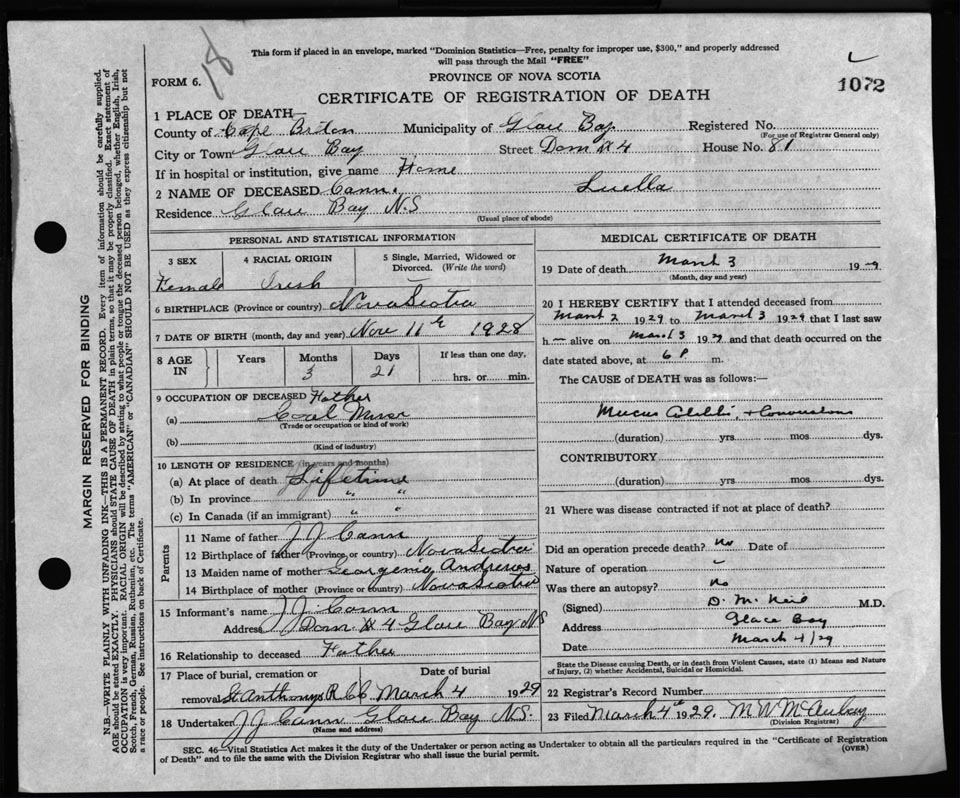 18
This form if placed in an envelope, marked "Dominion Statistics—Free, penalty for improper use, $300," and properly addressed
will pass through the Mail "FREE"
FORM 6.
PROVINCE OF NOVA SCOTIA
1072
CERTIFICATE OF REGISTRATION OF DEATH
MARGIN RESERVED FOR BINDING
N.B.—WRITE PLAINLY WITH UNFADING INK—THIS IS A PERMANENT RECORD. Every item of information should be carefully supplied.
AGE should be stated EXACTLY. PHYSICIANS should STATE CAUSE OF DEATH in plain terms, so that it may be properly classified. Exact statement of
OCCUPATION is very important. RACIAL ORIGIN will be described by stating to what people or tongue the deceased person belonged, whether English, Irish,
Scotch, French, German, Russian, Ruthenian, etc. The terms "AMERICAN" or "CANADIAN" SHOULD NOT BE USED as they express citizenship but not
a race or people. See instructions on back of Certificate.
1 PLACE OF DEATH
County of Cape Briton Municipality of Glace Bay Registered No.
(For use of Registrar General only)
City or Town Glace Bay Street Dom # 4 House No. 81
If in hospital or institution, give name Home
2 NAME OF DECEASED Cann, Luella
Residence Glace Bay N.S
(Usual place of abode)
PERSONAL AND STATISTICAL INFORMATION
3 SEX 4 RACIAL ORIGIN 5 Single, Married, Widowed or Divorced. (Write the word)
Female Irish
6 BIRTHPLACE (Province or country) Nova Scotia
7 DATE OF BIRTH (month, day and year) Nov 11th 1928
8 AGE IN Years Months Days If less than one day,
3 21 hrs. or min.
9 OCCUPATION OF DECEASED Father
(a) Coal Miner
(Trade or occupation or kind of work)
(b)
(Kind of industry)
10 LENGTH OF RESIDENCE (in years and months)
(a) At place of death Lifetime
(b) In province " "
(c) In Canada (if an immigrant) " "
Parents
11 Name of father J J Cann
12 Birthplace of father (Province, or country) Nova Scotia
13 Maiden name of mother Georgena Andrews
14 Birthplace of mother (Province or country) Nova Scotia
15 Informant's name J J Cann
Address Dom # 4 Glace Bay NS
16 Relationship to deceased Father
17 Place of burial, cremation or removal St Anthonys R C C Date of burial March 4 1929
18 Undertaker J J Cann Glace Bay N.S.
(Name and address)
MEDICAL CERTIFICATE OF DEATH
19 Date of death March 3 1929
(Month, day and year)
20 I HEREBY CERTIFY that I attended deceased from
March 2 1929 to March 3 1929 that I last saw
h alive on March 3 1929 and that death occurred on the
date stated above, at 6 P m.
The CAUSE of DEATH was as follows:—
Mucus + Convulsions
(duration) yrs mos dys.
CONTRIBUTORY
(duration) yrs. mos dys.
21 Where was disease contracted if not at place of death?
Did an operation precede death? No Date of
Nature of operation
Was there an autopsy? No
(Signed) D. McNeil M.D.
Address Glace Bay
Date March 4/29
State the Disease causing Death, or in death from Violent Causes, state (1) Means and Nature
of Injury, (2) whether Accidental, Suicidal or Homicidal.
22 Registrar's Record Number
23 Filed March 4th 1929. M W McAulay
(Division Registrar)
SEC. 46—Vital Statistics Act makes it the duty of the Undertaker or person acting as Undertaker to obtain all the particulars required in the "Certificate of Registration
of Death" and to file the same with the Division Registrar who shall issue the burial permit.
(OVER)